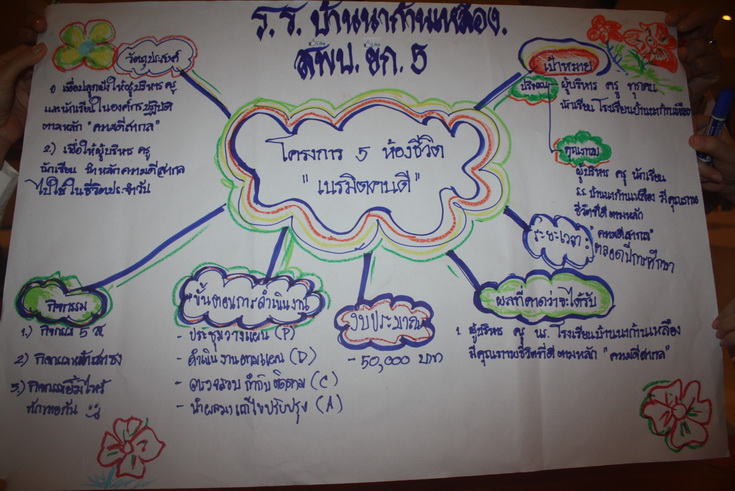 ร.ร. บ้านนาก้านเหลือง.
สพป. อก. 5
วัตถุประสงค์
1) เพื่อปลูกฝังให้ผู้บริหาร ครู
และนักเรียนในองค์กรปฏิบัติ
ตามหลัก "ความดีสากล"
2.) เพื่อให้ผู้บริหาร ครู
นักเรียน นำหลักความดีสากล
ไปใช้ในชีวิตประจำวัน
โครงการ 5 ห้องชีวิต
"เนรมิตคนดี"
เป้าหมาย
ปริมาณ
ผู้บริหาร ครู ทุกคน
นักเรียน โรงเรียนบ้านนาก้านเหลือง
คุณภาพ
ผู้บริหาร ครู นักเรียน
ร.ร. บ้านนาก้านเหลือง มีคุณภาพ
ชีวิตที่ดี ตามหลัก
"ความดีสากล"
ระยะเวลา :
ตลอดปีการศึกษา
กิจกรรม
1.) กิจกรรม 5 ส
2)
3.) กิจกรรมยิ้มไหว้
ทักทายกัน
ขั้นตอนการดำเนินงาน
- ประชุมวางแผน (P)
- ดำเนินงานตามแผน (D)
- ตรวจสอบ กำกับ ติดตาม (C)
- นำผลมาแก้ไขปรับปรุง (A)
งบประมาณ
- 50,000 บาท
ผลที่คาดว่าจะได้รับ
1. ผู้บริหาร ครู นร. โรงเรียนบ้านนาก้านเหลือง
มีคุณภาพชีวิตที่ดี ตามหลัก "ความดีสากล"